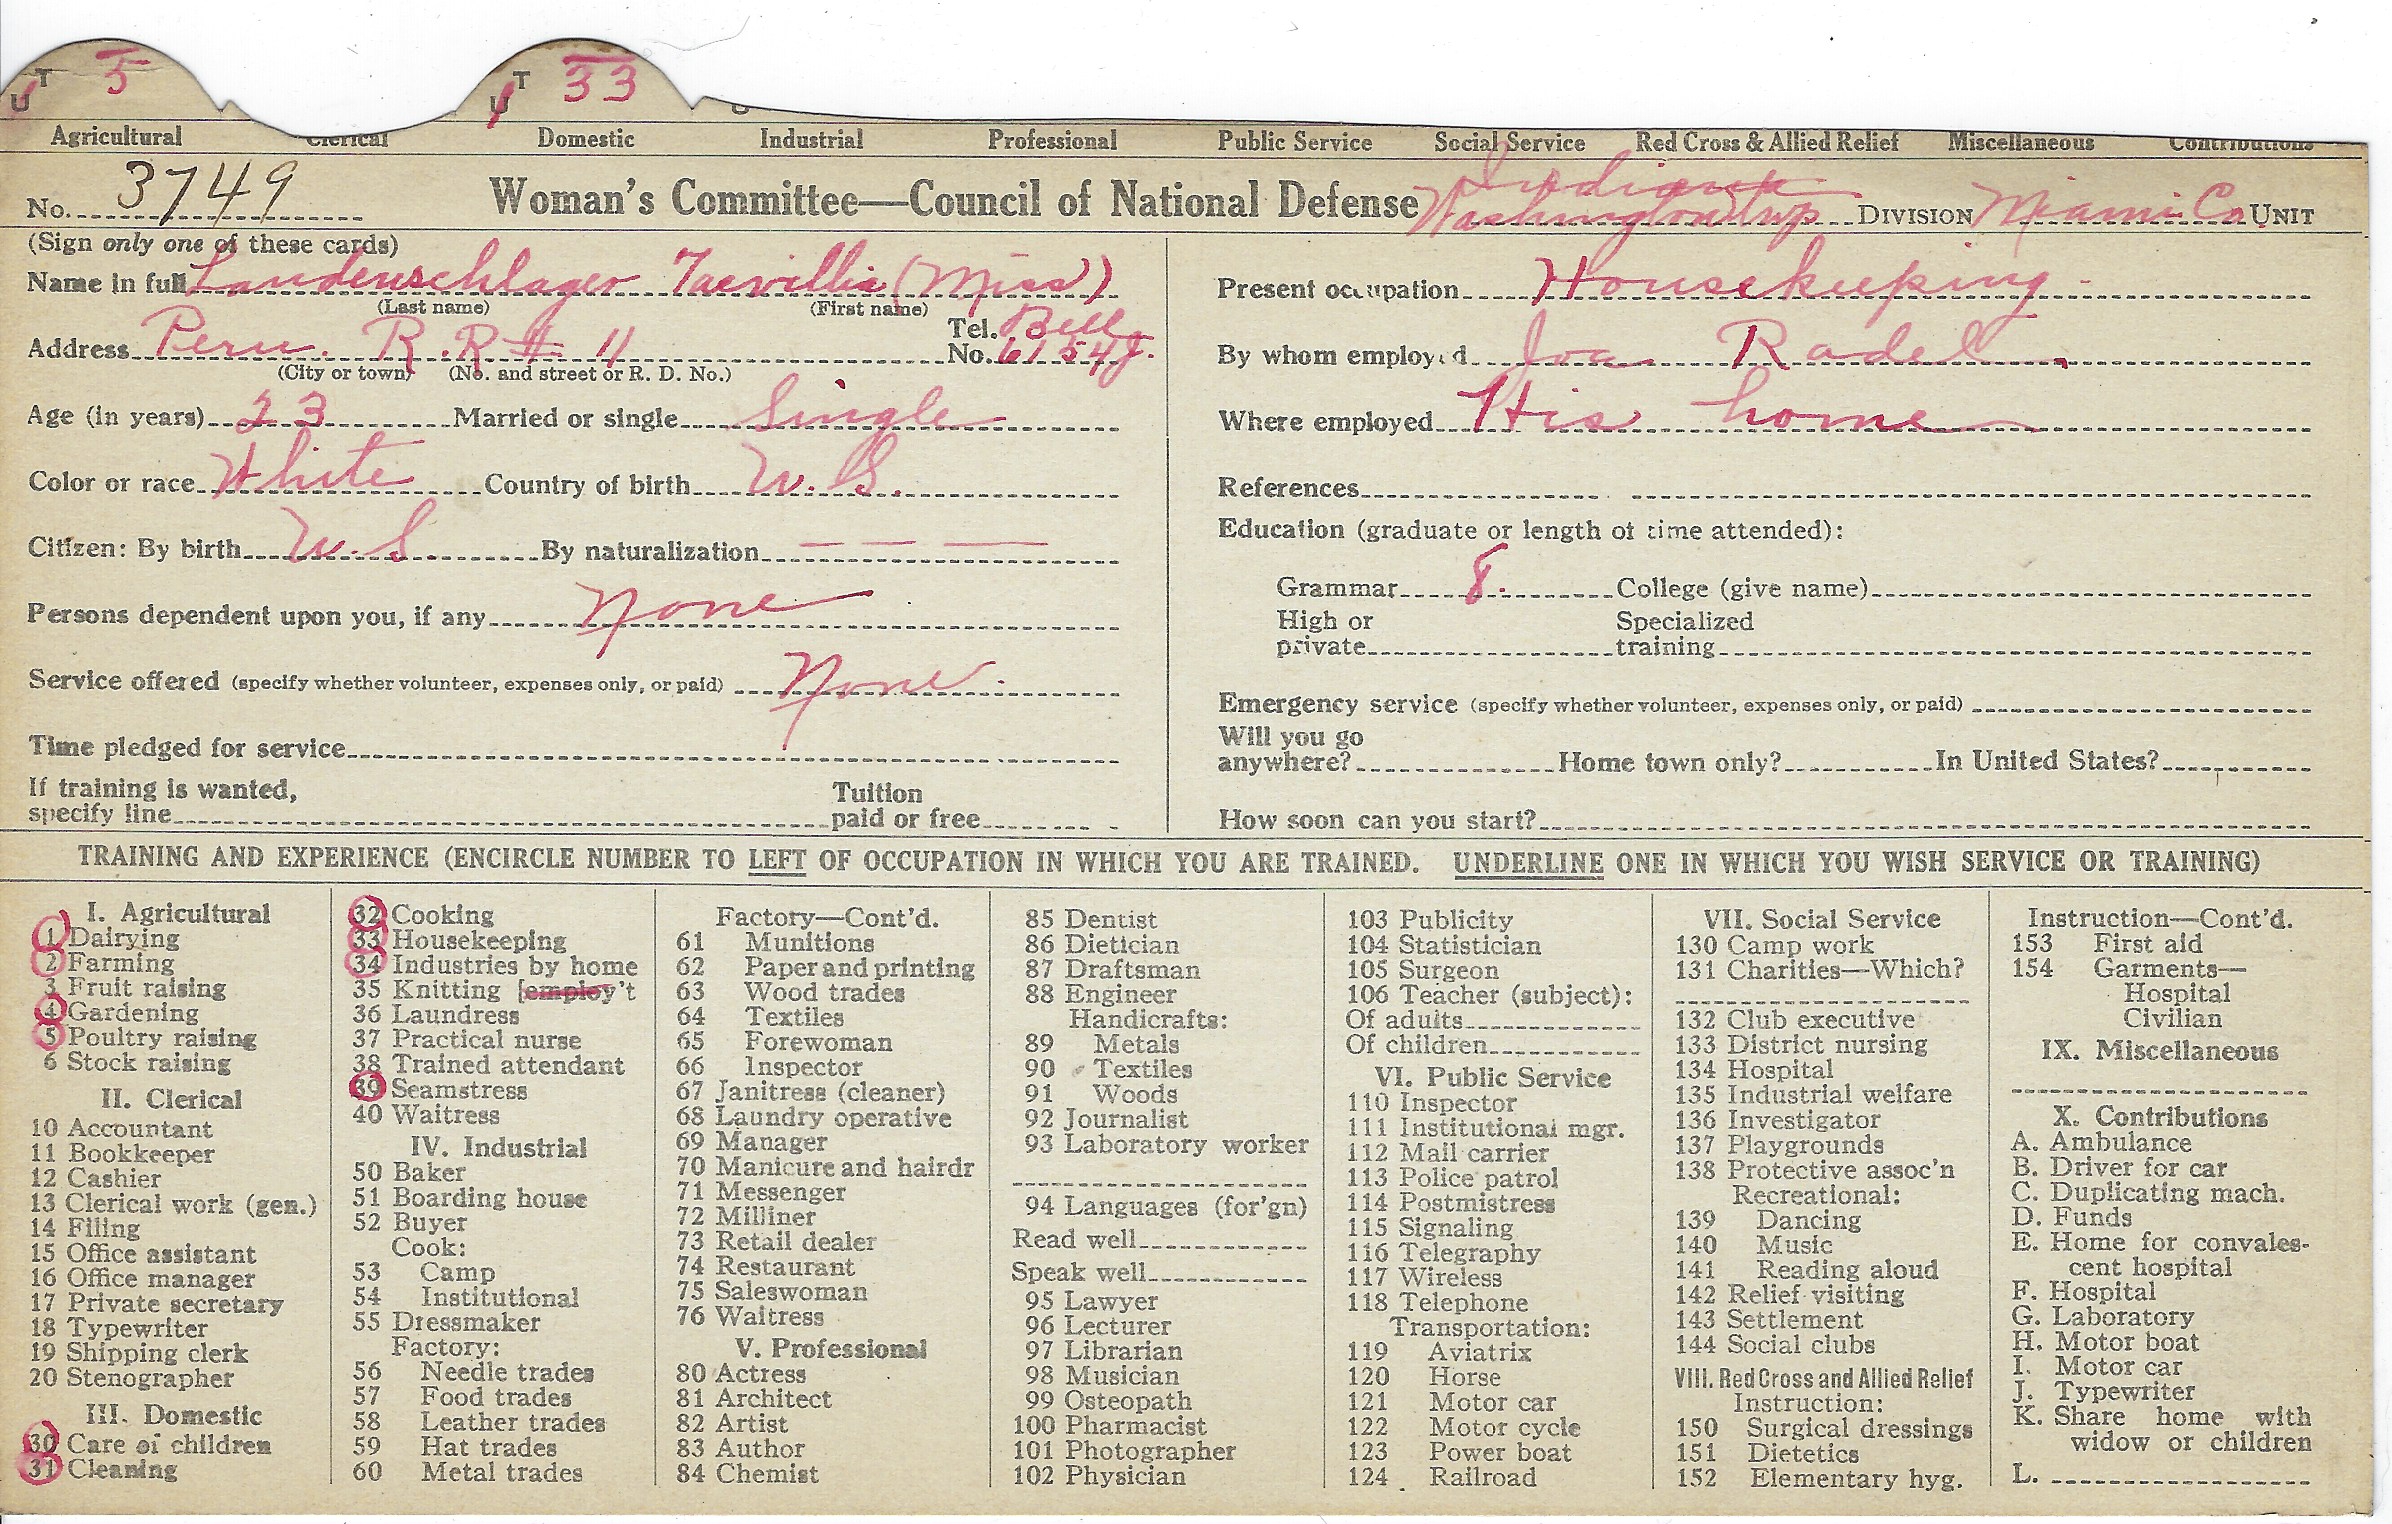 T 5 T 33
U U
Agricultural Clerical Domestic Industrial Professional Public Service Social Service Red Cross & Allied Relief Miscellaneous Contributions
Indiana
No. 3749 Woman's Committee—Council of National Defense Washington twp DIVISION Miami Co. UNIT
(Sign only one of these cards)
Name in full Landenschlager (Miss)
(Last name) (First name)
Address Peru. R.R # 11 Tel. No. Bell 6154J.
(City or town) (No. and street or R. D. No.)
Age (in years) 23 Married or single Single
Color or race White Country of birth U.S.
Citizen: By birth U.S By naturalization — — —
Persons dependent upon you, if any None
Service offered (specify whether volunteer, expenses only, or paid) None.
Time pledged for service
If training is wanted,
specify line
Tuition
paid or free
Present occupation Housekeeping
By whom employed Joa Radel.
Where employed His home
References
Education (graduate or length of time attended):
Grammar 8. College (give name)
High or
private
Specialized
training
Emergency service (specify whether volunteer, expenses only, or paid)
Will you go
anywhere? Home town only? In United States?
How soon can you start?
TRAINING AND EXPERIENCE (ENCIRCLE NUMBER TO LEFT OF OCCUPATION IN WHICH YOU ARE TRAINED. UNDERLINE ONE IN WHICH YOU WISH SERVICE OR TRAINING)
I. Agricultural
1 Dairying
2 Farming
3 Fruit raising
4 Gardening
5 Poultry raising
6 Stock raising
II. Clerical
10 Accountant
11 Bookkeeper
12 Cashier
13 Clerical work (gen.)
14 Filing
15 Office assistant
16 Office manager
17 Private secretary
18 Typewriter
19 Shipping clerk
20 Stenographer
III. Domestic
30 Care of children
31 Cleaning
32 Cooking
33 Housekeeping
34 Industries by home
35 Knitting [employ't
36 Laundress
37 Practical nurse
38 Trained attendant
39 Seamstress
40 Waitress
IV. Industrial
50 Baker
51 Boarding house
52 Buyer
Cook:
53 Camp
54 Institutional
55 Dressmaker
Factory:
56 Needle trades
57 Food trades
58 Leather trades
59 Hat trades
60 Metal trades
Factory—Cont'd.
61 Munitions
62 Paper and printing
63 Wood trades
64 Textiles
65 Forewoman
66 Inspector
67 Janitress (cleaner)
68 Laundry operative
69 Manager
70 Manicure and hairdr
71 Messenger
72 Milliner
73 Retail dealer
74 Restaurant
75 Saleswoman
76 Waitress
V. Professional
80 Actress
81 Architect
82 Artist
83 Author
84 Chemist
85 Dentist
86 Dietician
87 Draftsman
88 Engineer
Handicrafts:
89 Metals
90 Textiles
91 Woods
92 Journalist
93 Laboratory worker
94 Languages (for'gn)
Read well
Speak well
95 Lawyer
96 Lecturer
97 Librarian
98 Musician
99 Osteopath
100 Pharmacist
101 Photographer
102 Physician
103 Publicity
104 Statistician
105 Surgeon
106 Teacher (subject):
Of adults
Of children
VI. Public Service
110 Inspector
111 Institutional mgr.
112 Mail carrier
113 Police patrol
114 Postmistress
115 Signaling
116 Telegraphy
117 Wireless
118 Telephone
Transportation:
119 Aviatrix
120 Horse
121 Motor car
122 Motor cycle
123 Power boat
124 Railroad
VII. Social Service
130 Camp work
131 Charities—Which?
132 Club executive
133 District nursing
134 Hospital
135 Industrial welfare
136 Investigator
137 Playgrounds
138 Protective assoc'n
Recreational:
139 Dancing
140 Music
141 Reading aloud
142 Relief visiting
143 Settlement
144 Social clubs
VIII. Red Cross and Allied Relief
Instruction:
150 Surgical dressings
151 Dietetics
152 Elementary hyg.
Instruction—Cont'd.
153 First aid
154 Garments—
Hospital
Civilian
IX. Miscellaneous
X. Contributions
A. Ambulance
B. Driver for car
C. Duplicating mach.
D. Funds
E. Home for convales-
cent hospital
F. Hospital
G. Laboratory
H. Motor boat
I. Motor car
J. Typewriter
K. Share home with
widow or children
L.